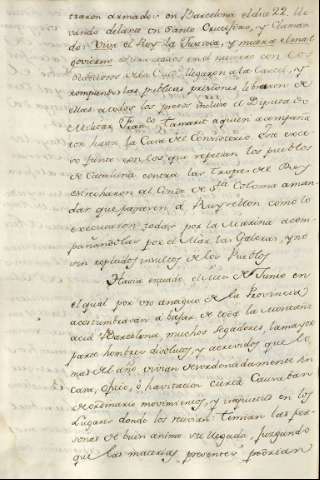 traron armados en Barcelona el dia 22. lle
vando delante un Santo Crucifixo, y Claman
do: Viva el Rey la Justicia, y muera el mal
govierno
de la Ciud. llegaron a la Carcel, y
rompiendo las publicas prisiones libraron de
ellas a todos los presos incluso el Diputado
Militar Fran.co Tamarit a quien acompaña
ron hasta la Casa de
junto con los que repetian los pueblos
de Cataluña contra las Tropas del Rey
estrecharon al Conde de S.ta Coloma aman
dar que pasasen a Ruysellon como lo
executaron todas por la Marina acom
pañandolas por el Mar las Galeras, y no
sin repetidos insultos de los Pueblos
Havia entrado el Mes de Junio en
el qual por uso antiguo de la Provincia
acostumbravan a bajar de toda la Montaña
acia Barcelona, muchos segadores, la mayor
parte hombres disolutos, y atrevidos que lo
mas del año vivian desordenadamente sin
casa, oficio, ò havitacion cierta Causaban
de ordinario movimientos, y inquietud en los
Lugares donde los recivian; temian las per
sonas de buen animo su llegada, juzgando
que las materias presentes podrian